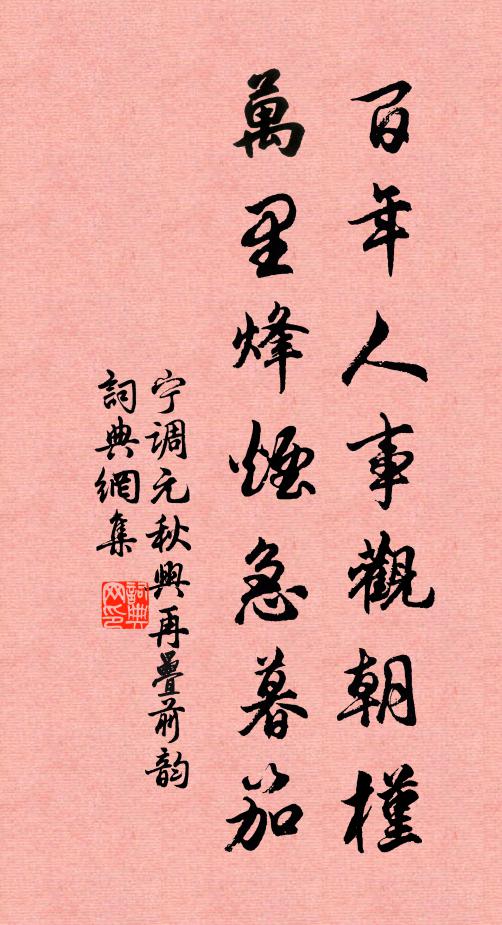 百年人事觀朝槿
萬里烽煙急暮笳
宁調元秋興再疊前韵
詞典網集
詞典网印